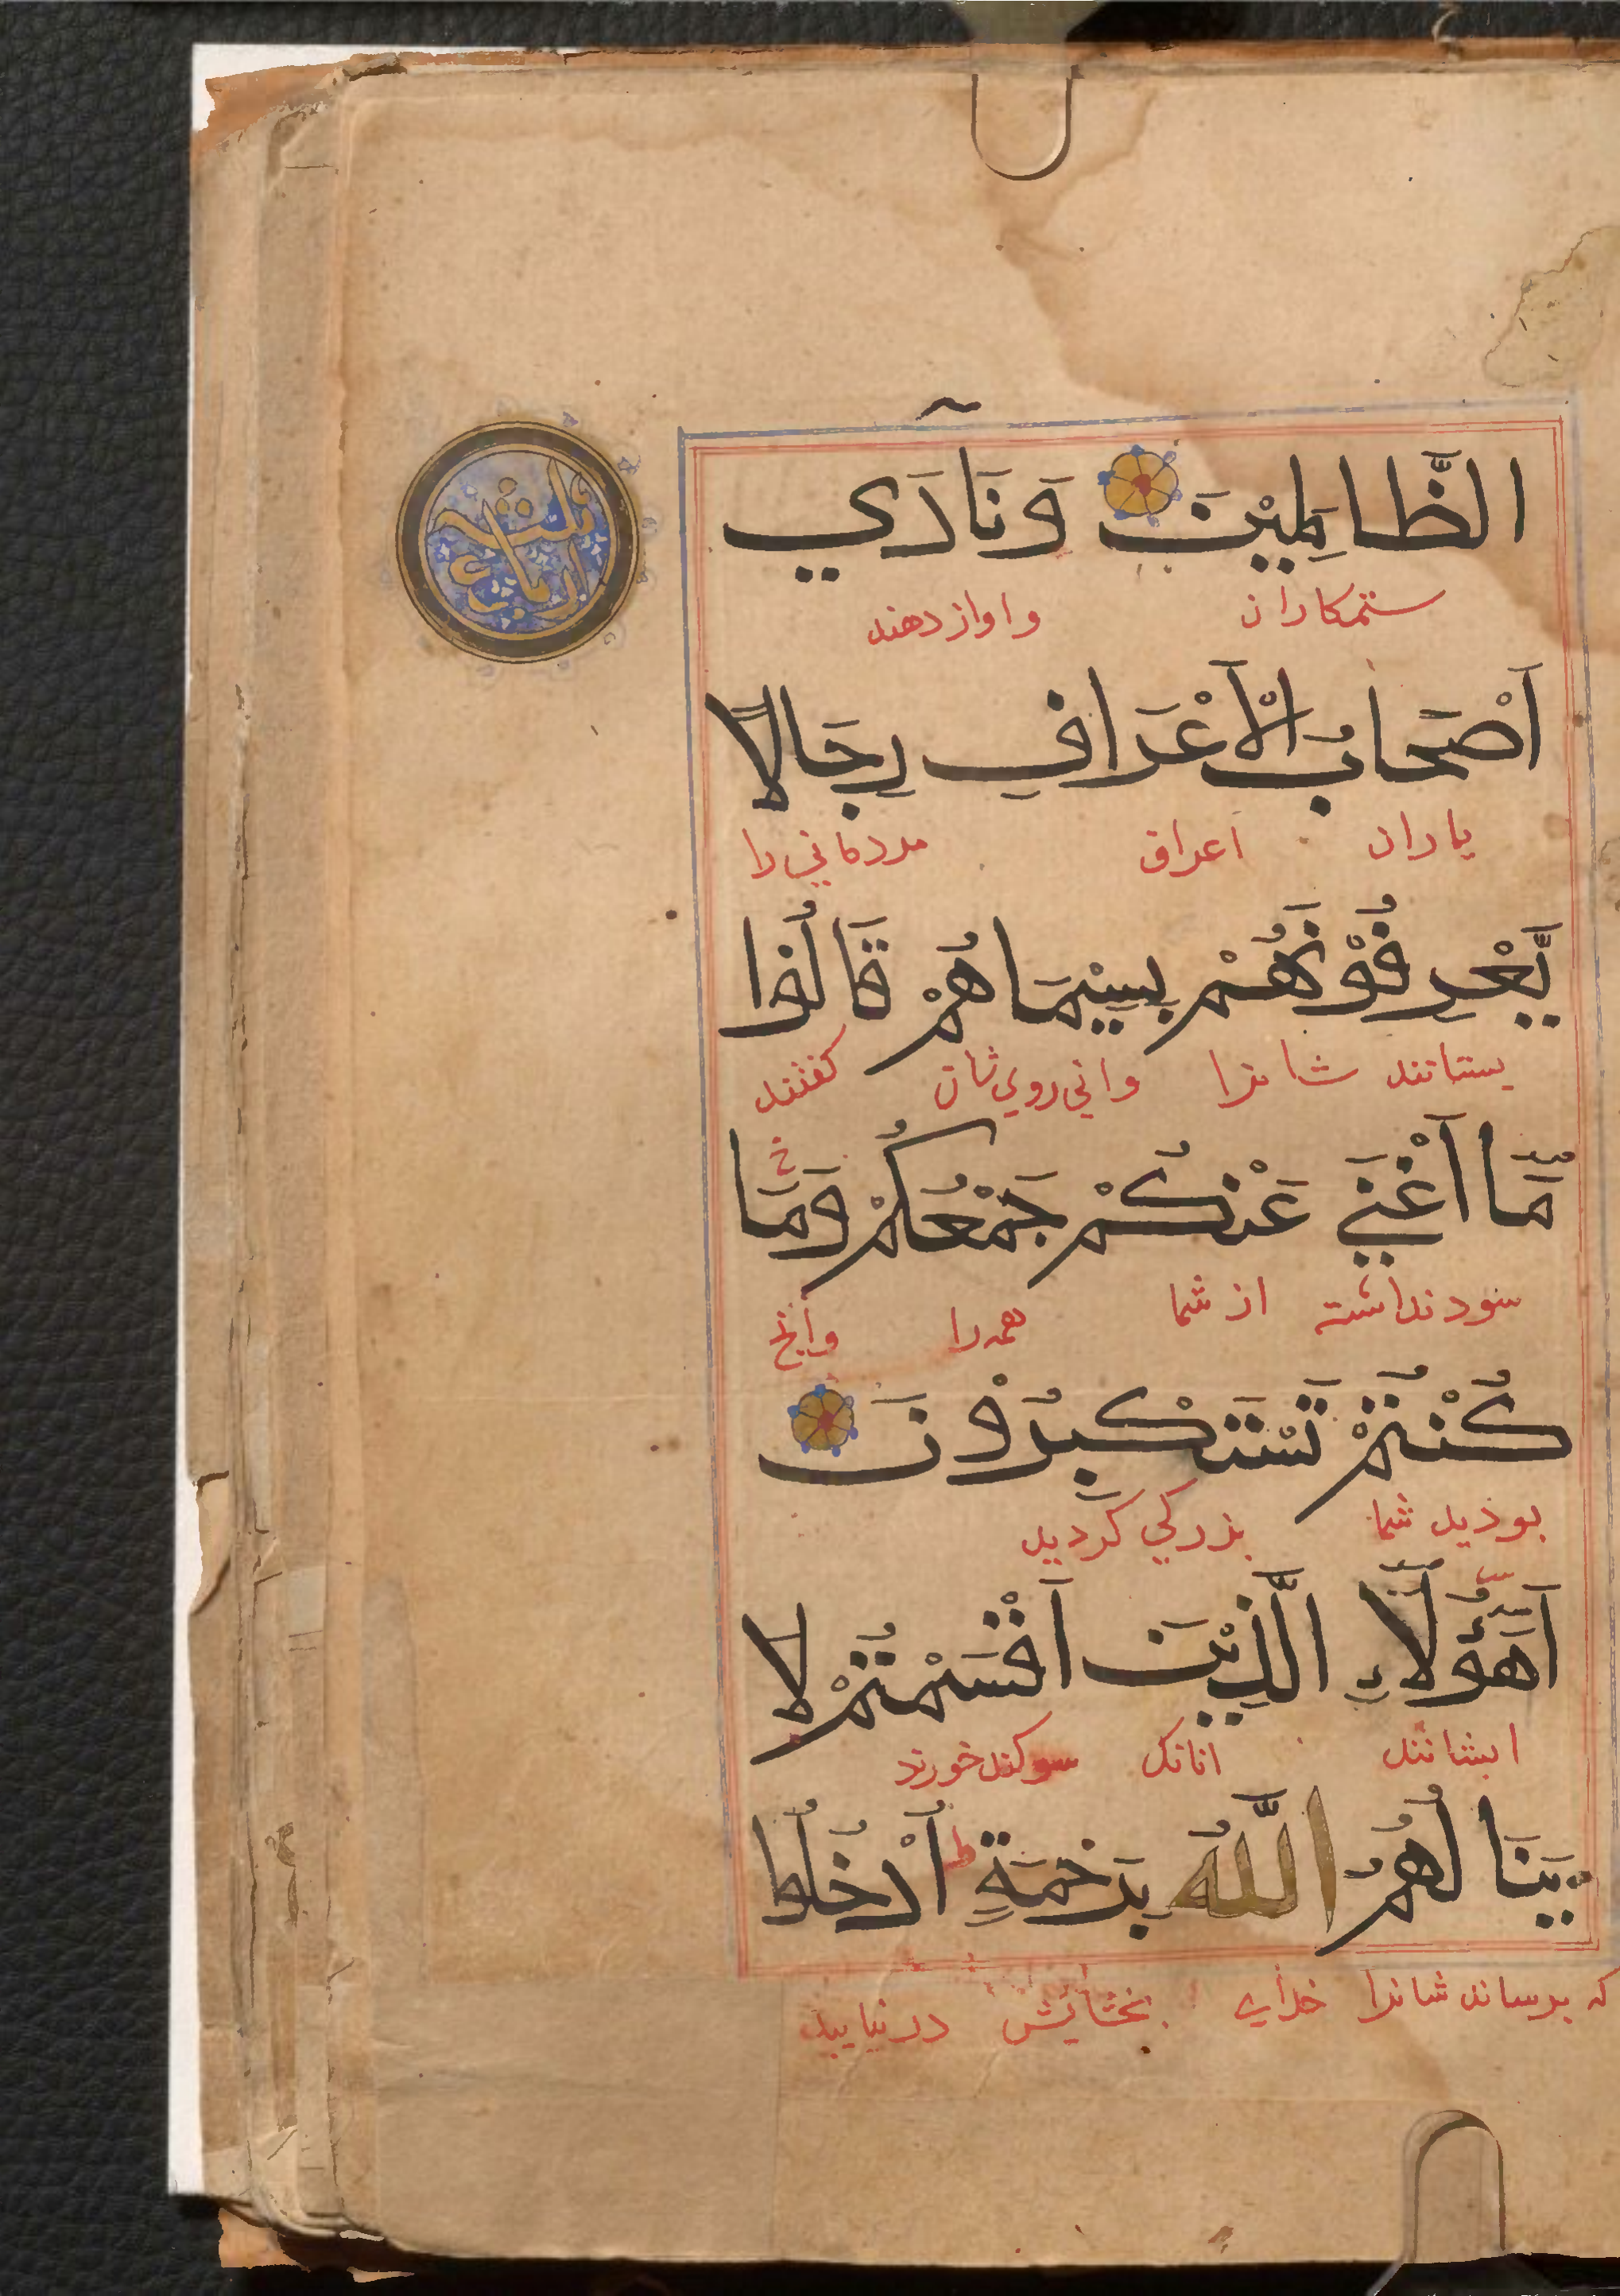 الظَّالِمِيْنَ وَنَادَي
ستمكاران واواز دهند
اَصْحَابُ الْاَعْرَافِ رِجَالًا
ياران اعراف مردماني را
يَّعْرِفُوْنَهُمْ بِسِيْمَاهُمْ قَالُوْا
شانرا كفتند
مَّا اَغْنَي عَنْكُمْ جَمْعُكُمْ وَمَا
سود نداشته از شما همه را وآنچ
كُنْتُمْ تَسْتَكْبِرُوْنَ
بوذيد شما بزركي كرديد
اَهَؤُلَاءِ الَّذِيْنَ اَقْسَمْتُمْ لَا
ايشانند انانك سوكند خورند
يَنَالُهُمُ اللَّهُ بِرَحْمَةٍ اُدْخُلُوا
كه برساند شانرا خذاي بخشايش